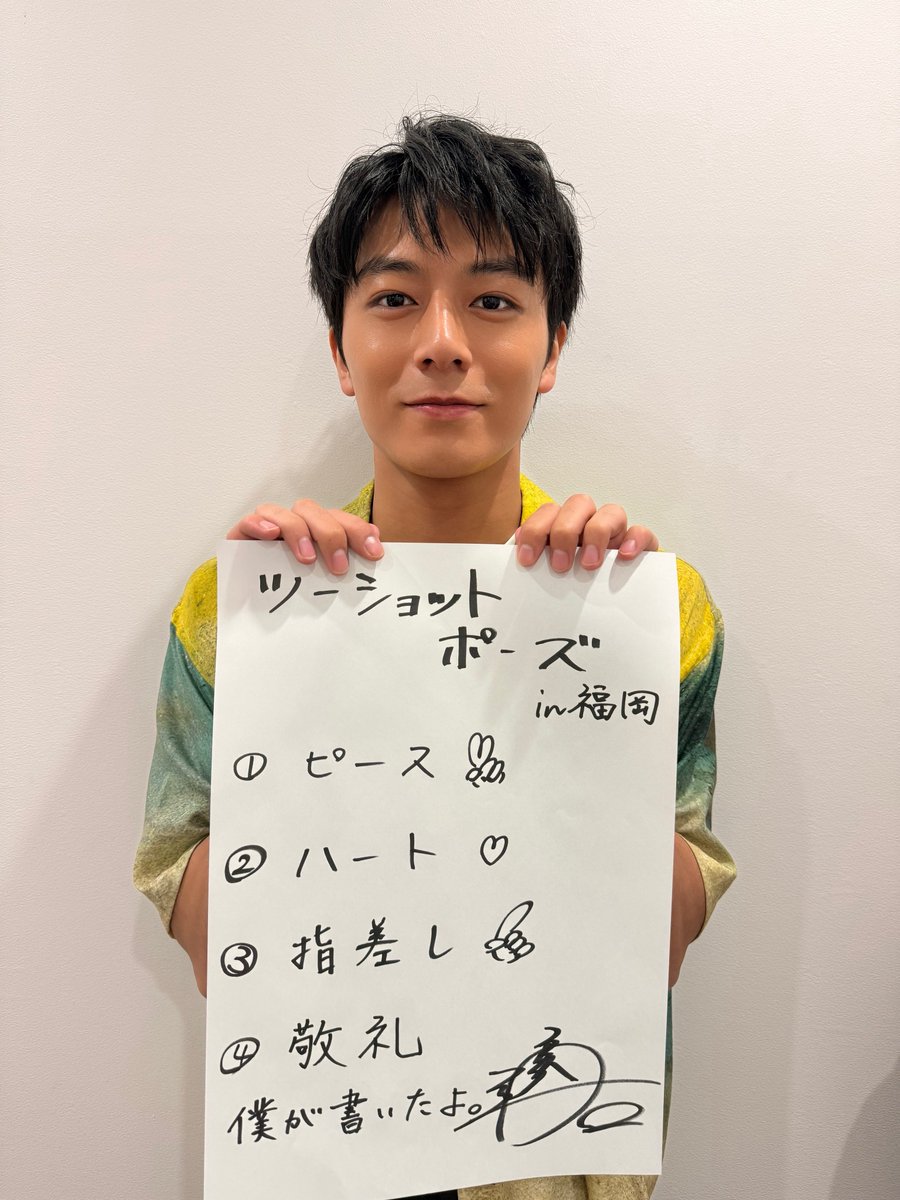 ツーショット
ポーズ
in福岡
① ピース
② ハート
③ 指差し
④ 敬礼
僕が書いたよ。